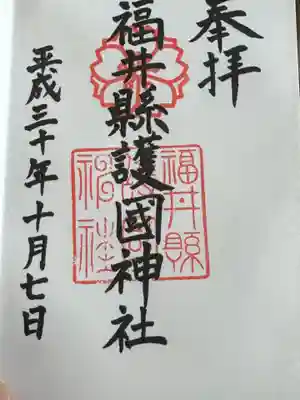 奉拝
福井縣護國神社
平成三十年十月七日
福井縣
護國
神社